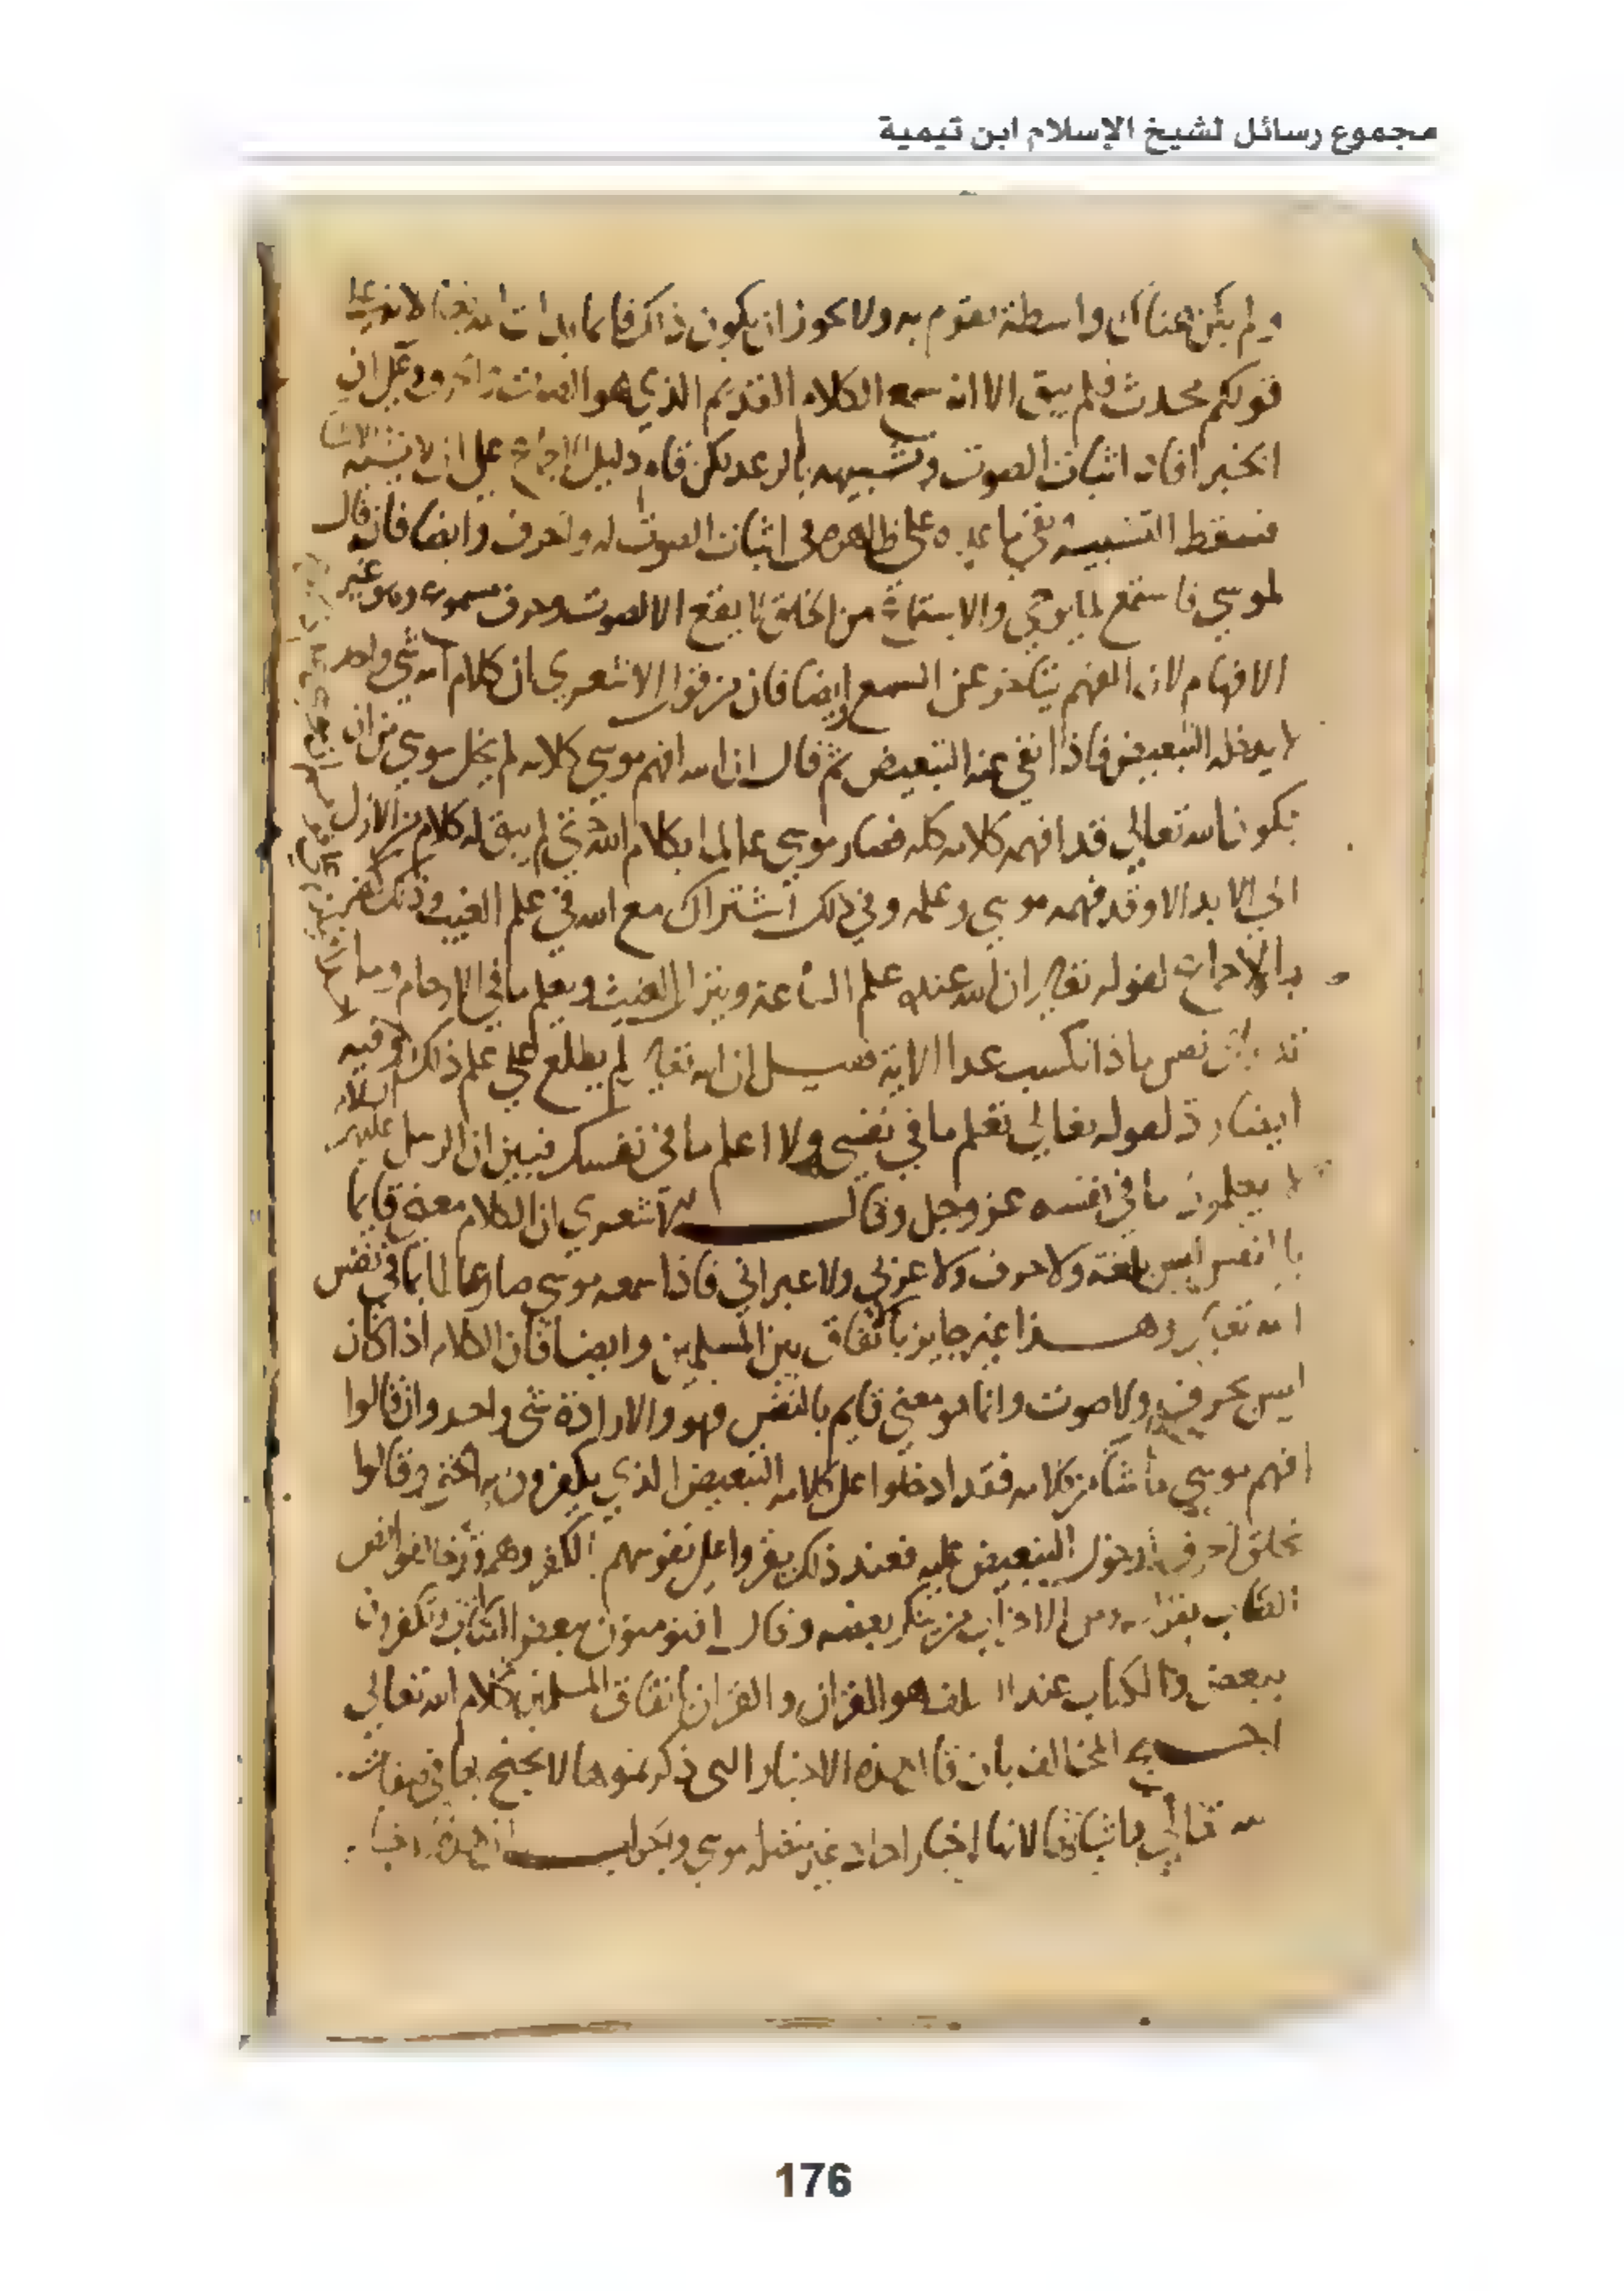 مجموع رسائل لشيخ الإسلام ابن تيمية
ولم يكن هناك واسطة يقوم به ولا يجوز ان يكون ذلك قائما بذات الله تعالى لانه على
قولكم محدث فلم يبق الا انه سمع الكلام القديم الذي هو الصوت
الخبر افاد اثبات الصوت وتشبيهه بالرعد لكن قام دليل الاجماع على ان لا يشبه
فسقط التشبيه بقي على ظاهره في اثبات الصوت له والحرف وايضا فانه قال
لموسى فاستمع لما يوحى والاستماع من الخلق لا يقع الا لصوت وحرف مسموع وهو غير
الافهام لان الفهم يتاخر عن السمع وايضا فان من قول الاشعري ان كلام الله شي واحد
لا يدخله التبعيض فاذا نفي عنه التبعيض ثم قال ان الله افهم موسى كلامه لم يخل موسى من ان
يكون الله تعالى قد افهمه كلامه كله فصار موسى عالما بكلام الله حتى لم يبق له كلام من الازل
الى الابد الا وقد فهمه موسى وعلمه وفي ذلك اشتراك مع الله في علم الغيب وذلك كفر
بالاجماع لقوله تعالى ان الله عنده علم الساعة وينزل الغيث ويعلم ما في الارحام وما
تدري نفس ماذا تكسب غدا الاية قيل ان الله تعالى لم يطلع على علم ذلك وفيه
ايضا رد لقوله تعالى تعلم ما في نفسي ولا اعلم ما في نفسك فتبين ان الرسل عليهم السلام
لا يعلمون ما في نفسه عز وجل وقال الاشعري ان الكلام معنى قايما
بالنفس ليس بلغة ولا حرف ولا عربي ولا عبراني فاذا سمعه موسى صار عالما بما في نفس
الله تعالى وهذا غير جايز باتفاق بين المسلمين وايضا فان الكلام اذا كان
ليس بحرف ولا صوت وانما هو معنى قايم بالنفس فهو والارادة شي واحد وان قالوا
افهم موسى ما شا من كلامه فقد ادخلوا على كلامه التبعيض الذي يكفرون به وقالوا
بخلق الحرف لدخول التبعيض عليه فعند ذلك يقروا على نفوسهم بالكفر وهم
الكتاب بقوله ومن الاحزاب من ينكر بعضه وقال افتومنون ببعض الكتاب وتكفرون
ببعض والكتاب عند السلف هو القران والقران باتفاق المسلمين كلام الله تعالى
احتج المخالف بان قال هذه الاخبار التي ذكرتموها لا يحتج بها في صفات
الله تعالى باثباتها لانها اخبار احاد غير متصلة موسى والجواب ان هذه
176